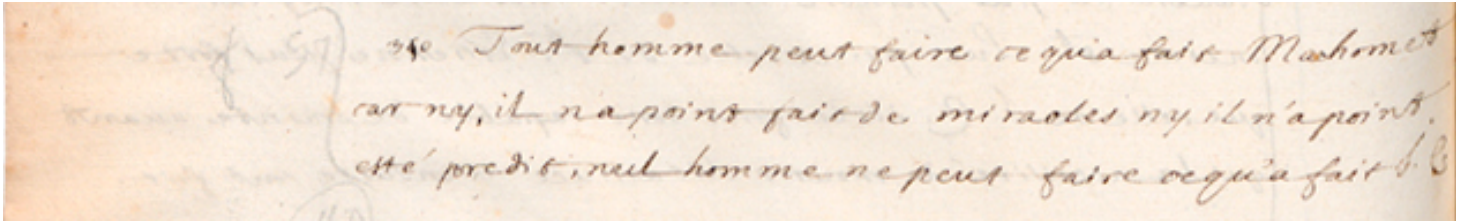 Tout homme peut faire ce qu'a fait Mahomet
car ny, il n'a point fait de miracles ny il n'a point.
esté predit, neul homme ne peut faire ce qu'a fait J. C